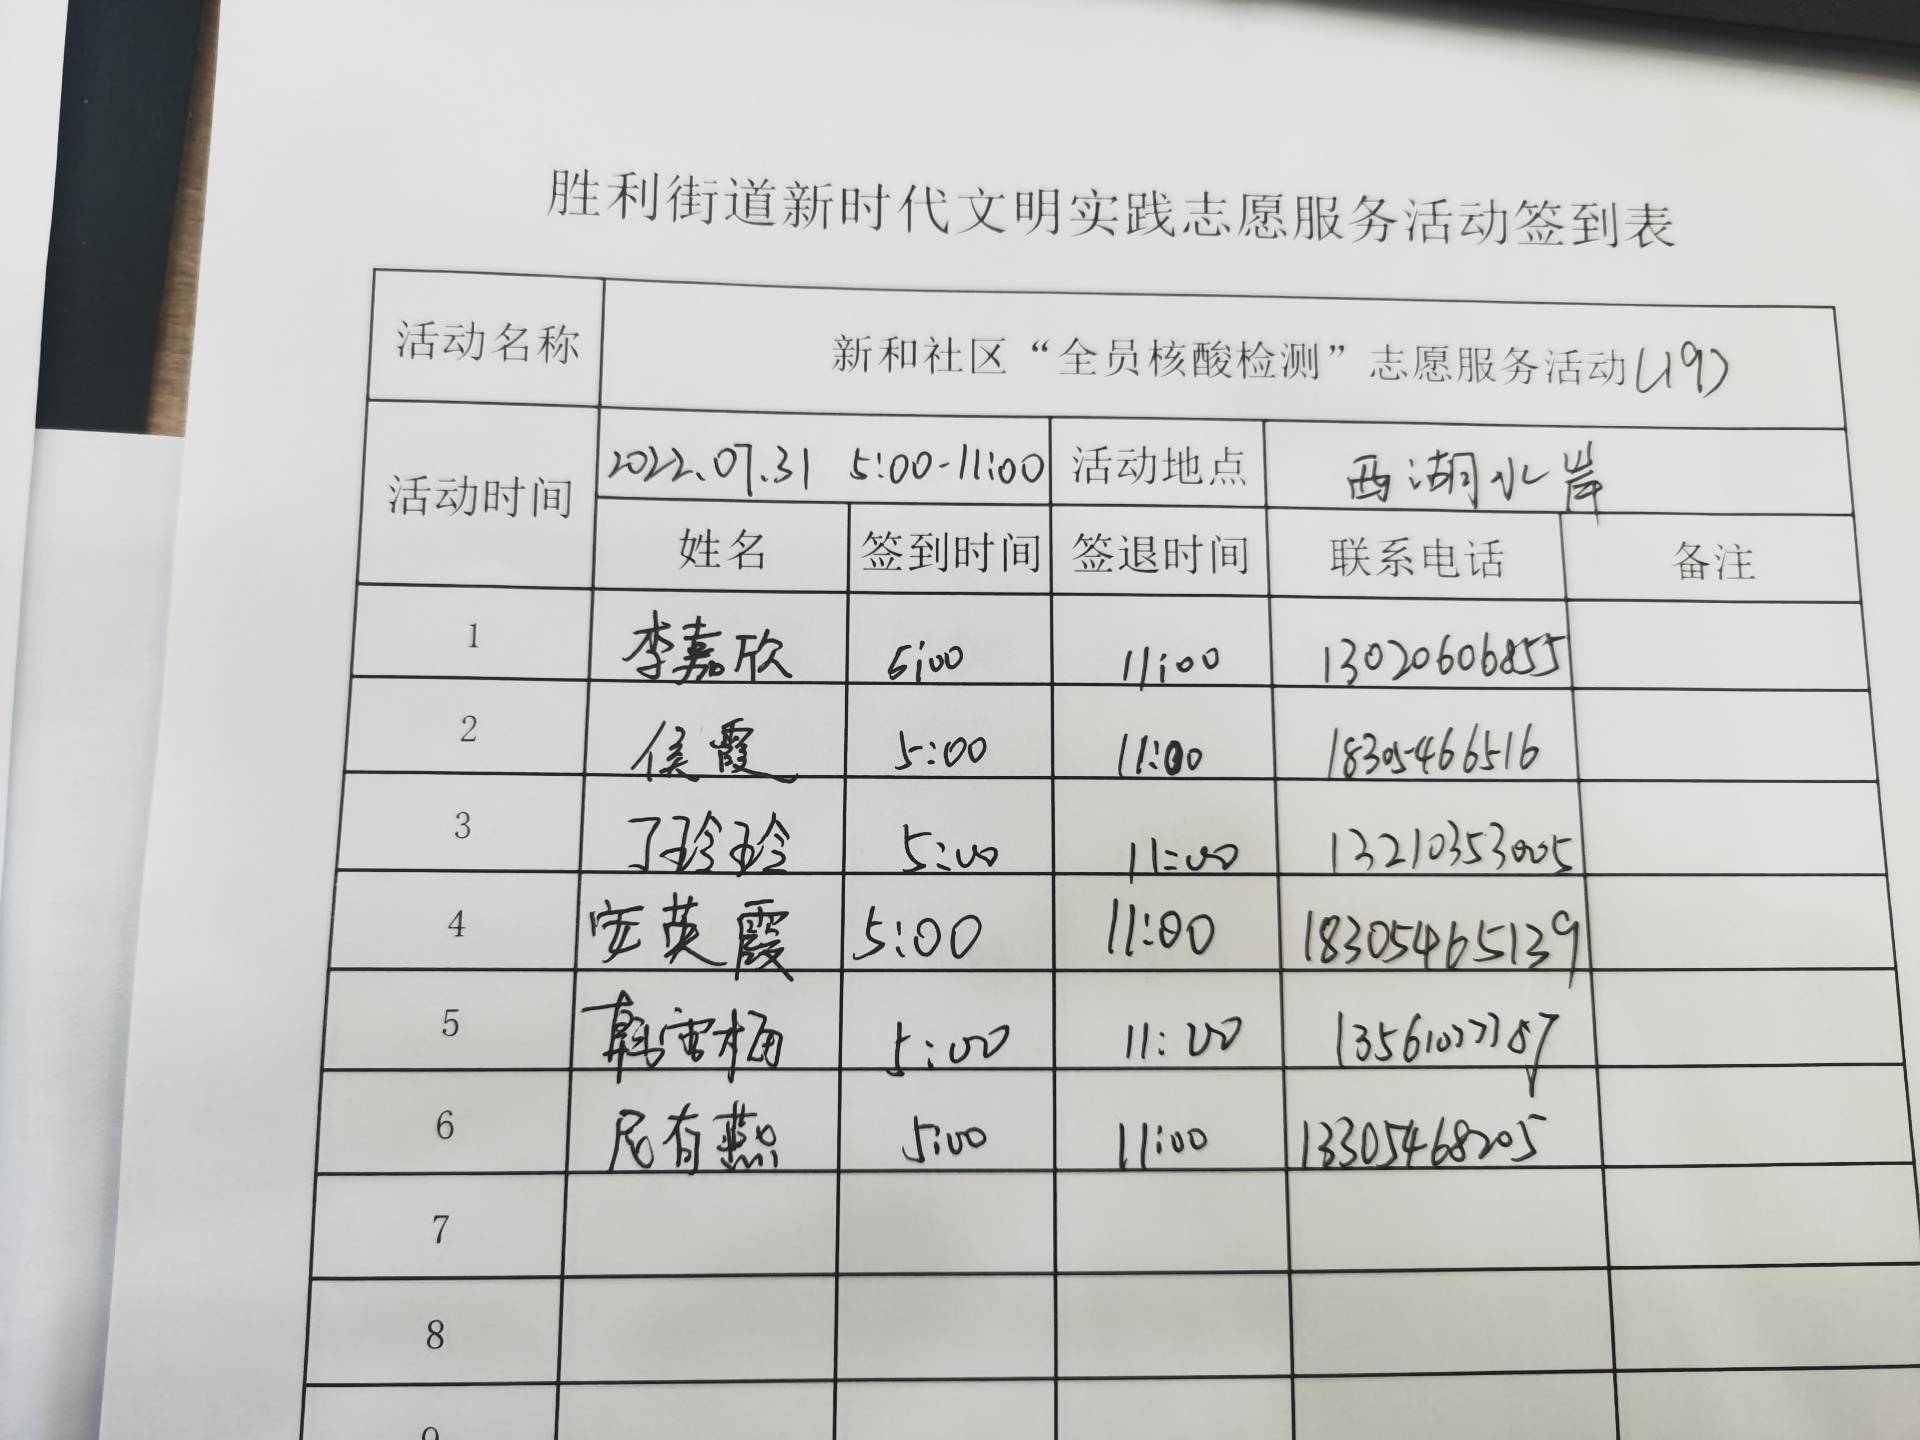 胜利街道新时代文明实践志愿服务活动签到表
活动名称 新和社区“全员核酸检测”志愿服务活动(19)
活动时间 2022.07.31 5:00-11:00 活动地点 西湖水岸
姓名 签到时间 签退时间 联系电话 备注
1 李嘉欣 5:00 11:00 13020606855
2 侯霞 5:00 11:00 18305466516
3 丁玲玲 5:00 11:00 13210353005
4 安英霞 5:00 11:00 18305465139
5 5:00 11:00
6 尼有燕 5:00 11:00 13305468205
7
8